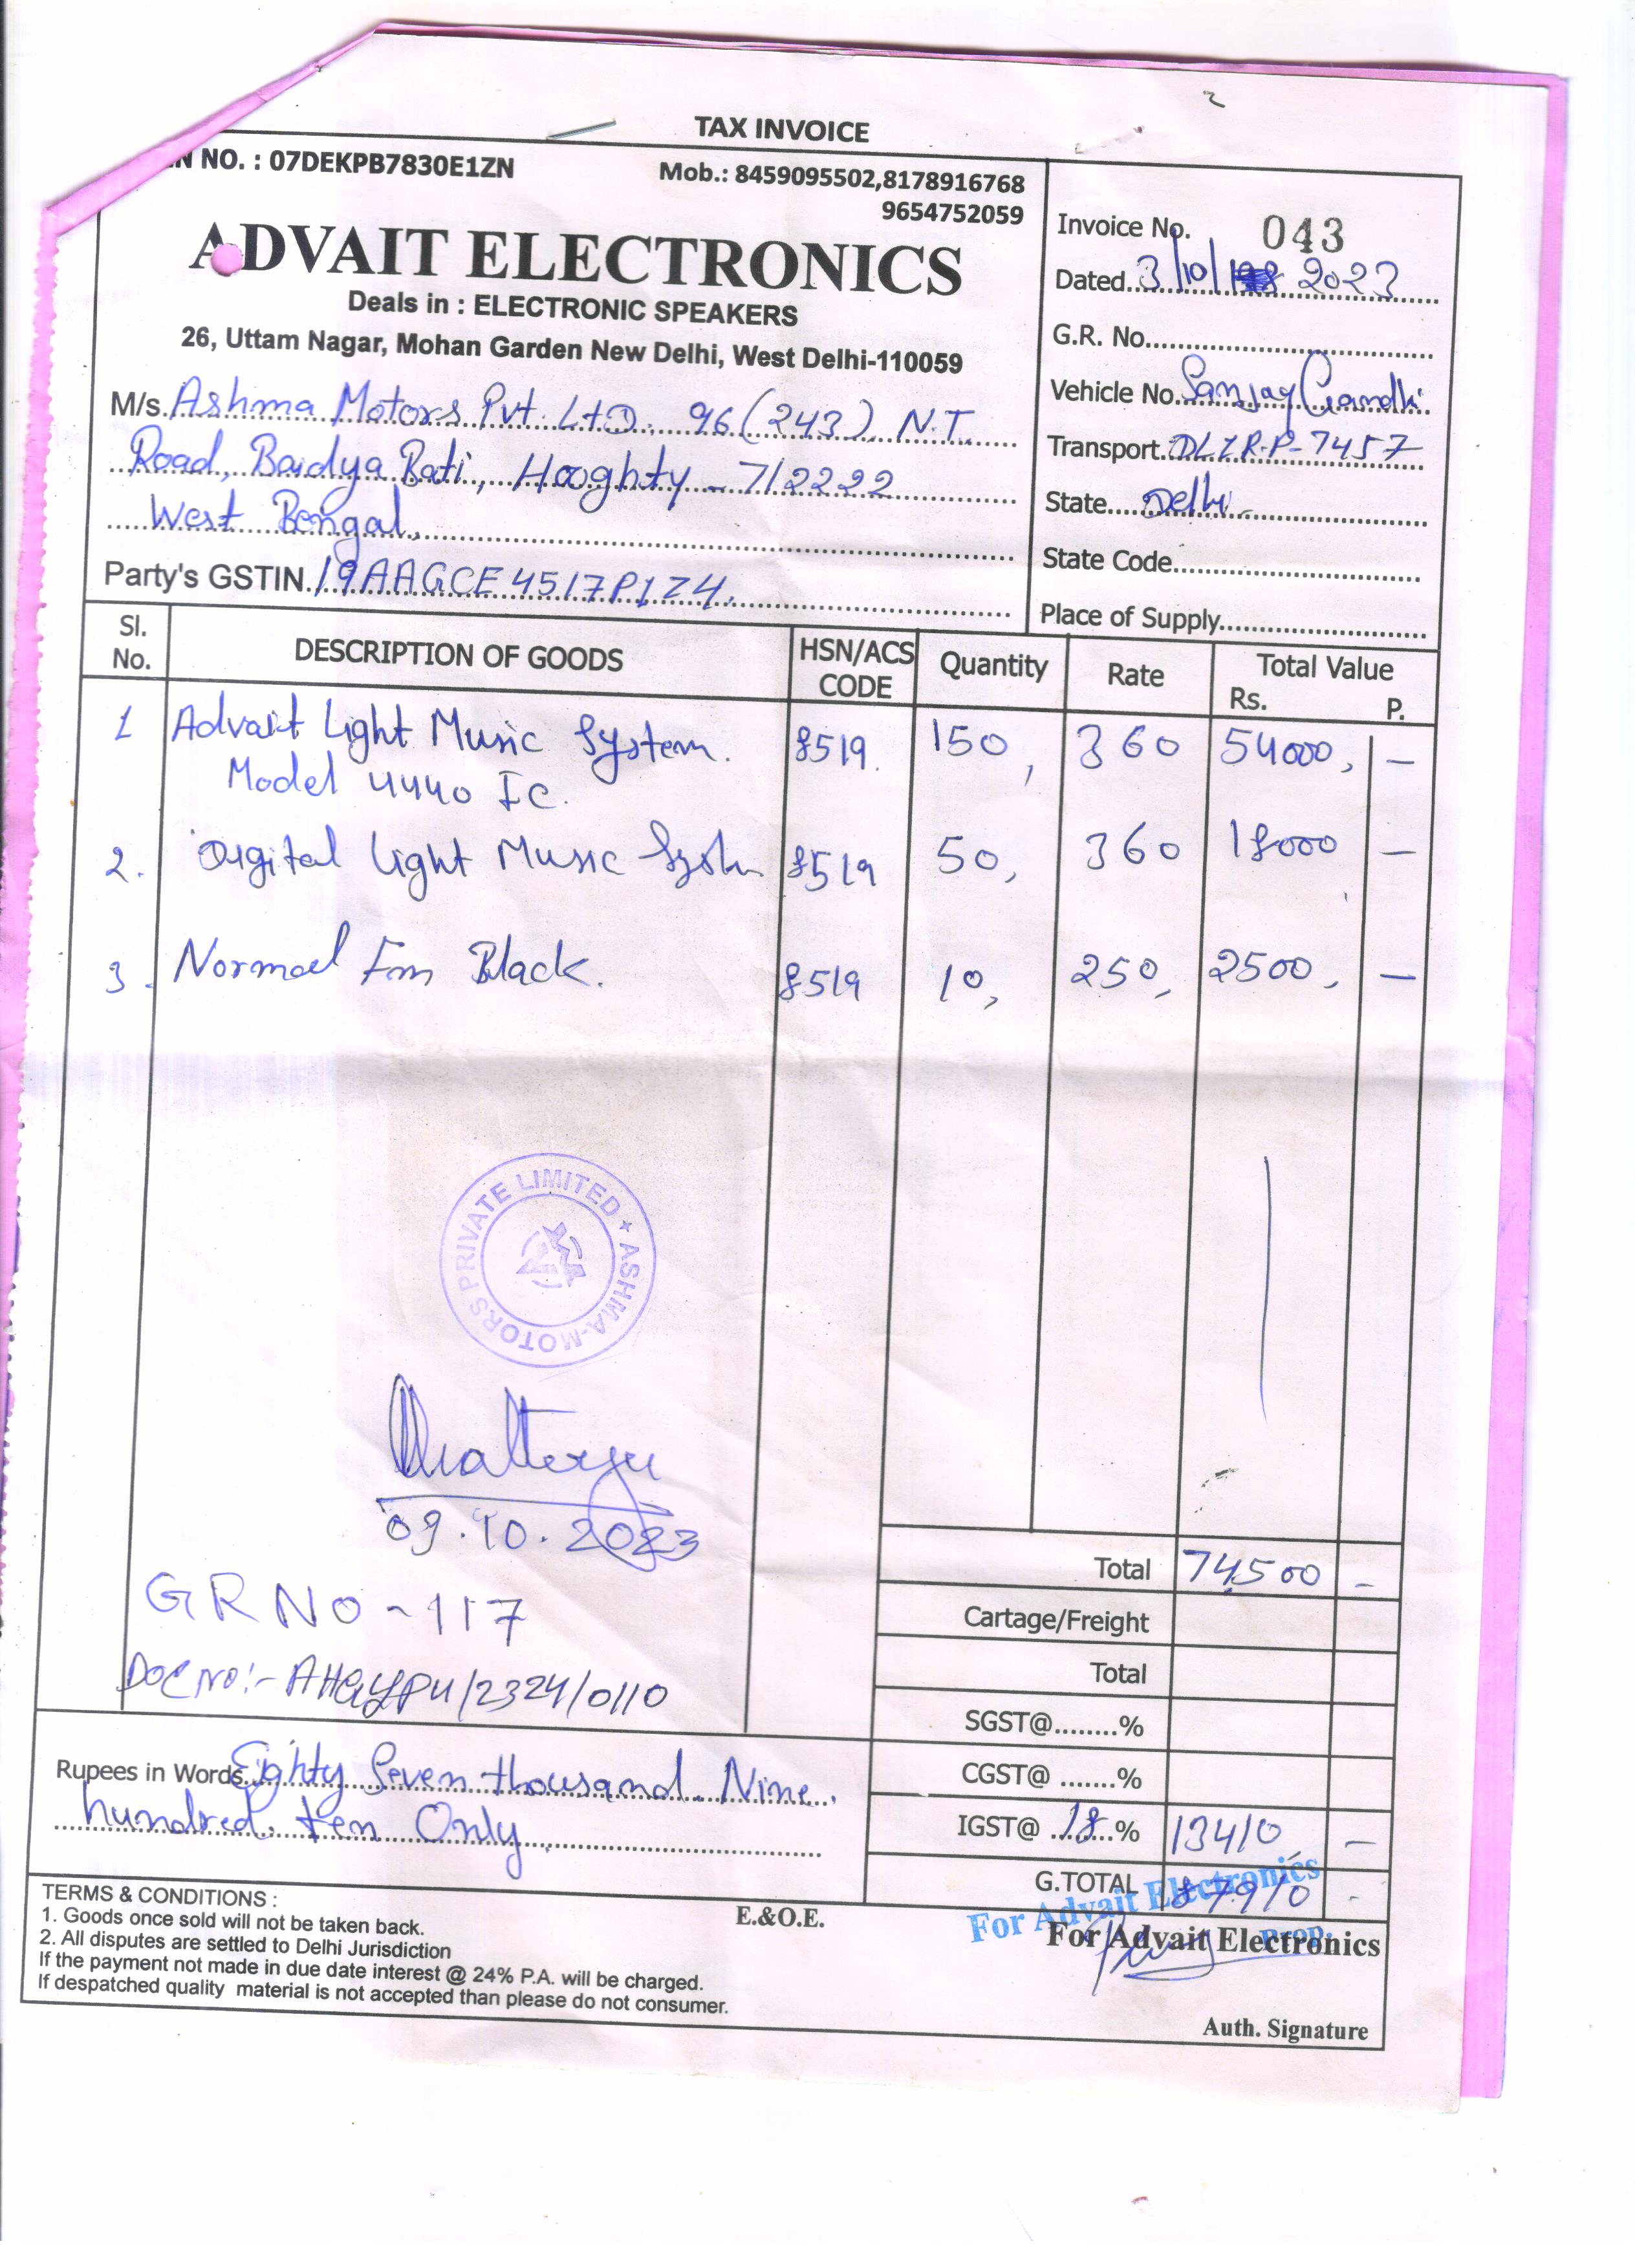 TAX INVOICE
N NO. : 07DEKPB7830E1ZN
Mob.: 8459095502,8178916768
9654752059
ADVAIT ELECTRONICS
Deals in : ELECTRONIC SPEAKERS
26, Uttam Nagar, Mohan Garden New Delhi, West Delhi-110059
Invoice No. 043
Dated 3/10/ 2023
G.R. No.
Vehicle No. Sanjay Gandhi
Transport. DL1RP-7457
State Delhi
State Code
Place of Supply
M/s. Ashma Motors Pvt. LtD. 96 (243) N.T.
Road, Baidya Bati, Hooghty - 712222
West Bengal,
Party's GSTIN. 19AAGCE4517P1Z4.
Sl. No. DESCRIPTION OF GOODS HSN/ACS CODE Quantity Rate Total Value Rs. P.
1 Advait Light Music System. 8519. 150, 360 54000, -
Model 4440 IC.
2. Digital Light Music System 8519 50, 360 18000 -
3. Normal Fm Black. 8519 10, 250, 2500, -
ASHMA-MOTORS PRIVATE LIMITED ★
09.10.2023
GR NO - 117
DOC NO:- /2324/0110
Total 74500 -
Cartage/Freight
Total
SGST@........%
CGST@ .......%
IGST@ 18 % 13410 -
G.TOTAL 87910 -
Rupees in Words Eighty Seven thousand Nine
hundred ten Only
TERMS & CONDITIONS :
1. Goods once sold will not be taken back.
2. All disputes are settled to Delhi Jurisdiction
If the payment not made in due date interest @ 24% P.A. will be charged.
If despatched quality material is not accepted than please do not consumer.
E.&O.E.
For Advait Electronics
Prop.
For Advait Electronics
Auth. Signature